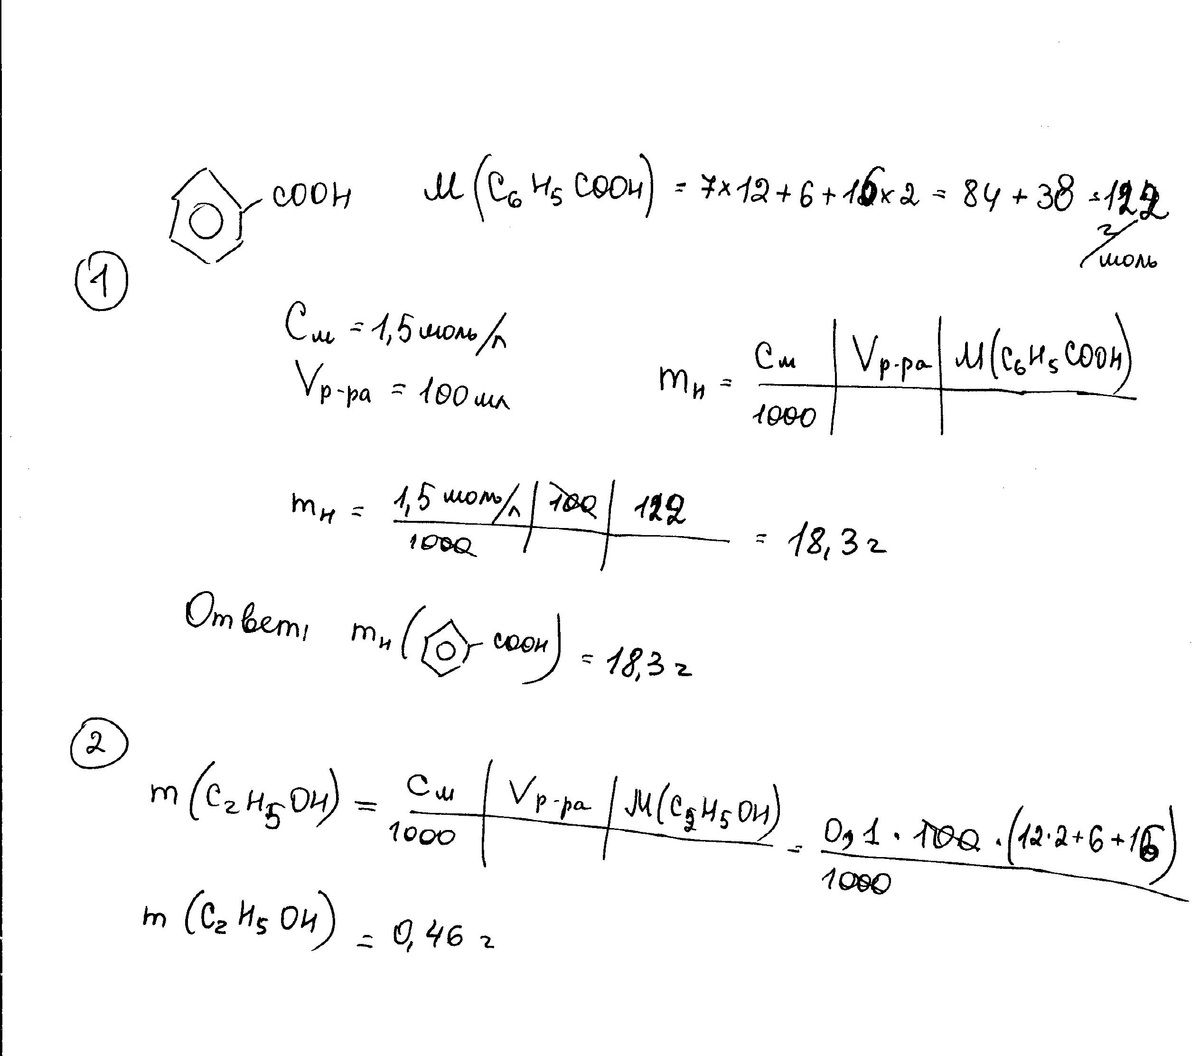 COOH M(C₆H₅COOH) = 7×12+6+16×2 = 84+38 =122 г/моль
1
Cм = 1,5 моль/л
Vр-ра = 100 мл
mн = Cм | Vр-ра | M(C₆H₅COOH) / 1000
mн = 1,5 моль/л | 100 | 122 / 1000 = 18,3 г
Ответ: mн ( COOH) = 18,3 г
2
m (C₂H₅OH) = Cм | Vр-ра | M(C₂H₅OH) / 1000 = 0,1 · 100 · (12·2+6+16) / 1000
m (C₂H₅OH) = 0,46 г